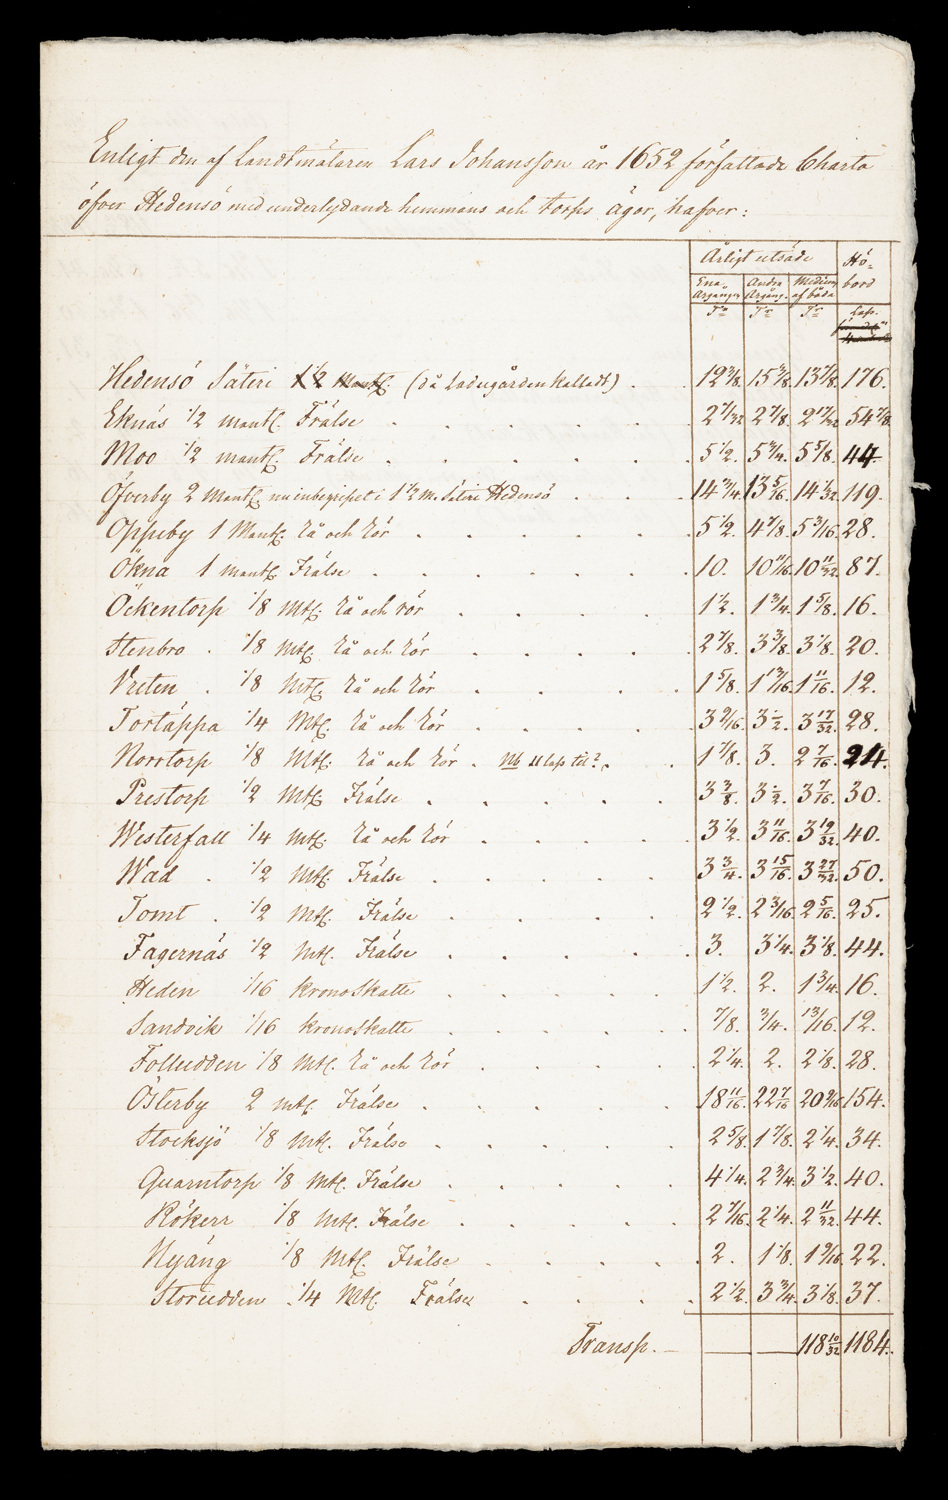 Enligt den af Landtmätaren Lars Johansson år 1652 författade Charta
öfver Hedensö med underlydande hemmans och torps ägor, hafver:
Årligt utsäde Hö-
bord
Ena Årgången Andra Årgång. Medium af båda
Tr Tr Tr Lass.
Hedensö Säteri 1 1/2 Mantl. (då Ladugården kalladt) . 12 3/8. 15 3/8. 13 7/8. 176.
Eknäs 1/2 mantl. Frälse . 2 7/32 2 7/8. 2 17/32 54 7/8.
Moo 1/2 mantl. Frälse . 5 1/2. 5 3/4. 5 5/8. 44.
Öfverby 2 Mantl. nu inbegripet i 1 1/2 M. Säteri Hedensö . 14 3/4. 13 5/16. 14 1/32 119.
Oppeby 1 Mantl. Rå och Rör . 5 1/2. 4 7/8. 5 3/16. 28.
Ökna 1 mantl. Frälse . 10. 10 11/16. 10 11/32. 87.
Öckentorp 1/8 Mtl. Rå och rör . 1 1/2. 1 3/4. 1 5/8. 16.
Stenbro . 1/8 Mtl. Rå och Rör . 2 7/8. 3 3/8. 3 1/8. 20.
Vreten . 1/8 Mtl. Rå och Rör . 1 5/8. 1 13/16. 1 11/16. 12.
Tortäppa 1/4 Mtl. Rå och Rör . 3 9/16. 3 1/2. 3 17/32. 28.
Norrtorp 1/8 Mtl. Rå och Rör . Nb 11 lass til? . 1 7/8. 3. 2 7/16. 24.
Prestorp 1/2 Mtl. Frälse . 3 3/8. 3 1/2. 3 7/16. 30.
Westerfall 1/4 Mtl. Rå och Rör . 3 1/2. 3 11/16. 3 19/32. 40.
Wad . 1/2 Mtl. Frälse . 3 3/4. 3 15/16. 3 27/32. 50.
Tomt . 1/2 Mtl. Frälse . 2 1/2. 2 3/16. 2 5/16. 25.
Fagernäs 1/2 Mtl. Frälse . 3. 3 1/4. 3 1/8. 44.
Heden 1/16 KronoSkatte . 1 1/2. 2. 1 3/4. 16.
Sandvik 1/16 KronoSkatte . 7/8. 3/4. 13/16. 12.
Folludden 1/8 Mtl. Rå och Rör . 2 1/4. 2. 2 1/8. 28.
Österby 2 mtl. Frälse . 18 11/16. 22 7/16 20 9/16 154.
Stocksjö 1/8 Mtl. Frälse . 2 5/8. 1 7/8. 2 1/4. 34.
Quarntorp 1/8 Mtl. Frälse . 4 1/4. 2 3/4. 3 1/2. 40.
Rökerr 1/8 Mtl. Frälse . 2 7/16. 2 1/4. 2 11/32 44.
Nyäng 1/8 Mtl. Frälse . 2. 1 1/8. 1 9/16. 22.
Storudden . 1/4 Mtl. Frälse . 2 1/2. 3 3/4. 3 1/8. 37.
Transp. — — — 118 10/32 1184.